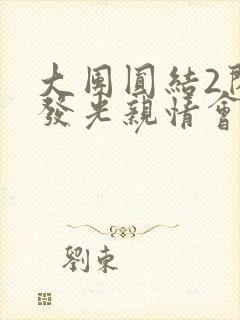 大團圓結2
發光親情會
劉東